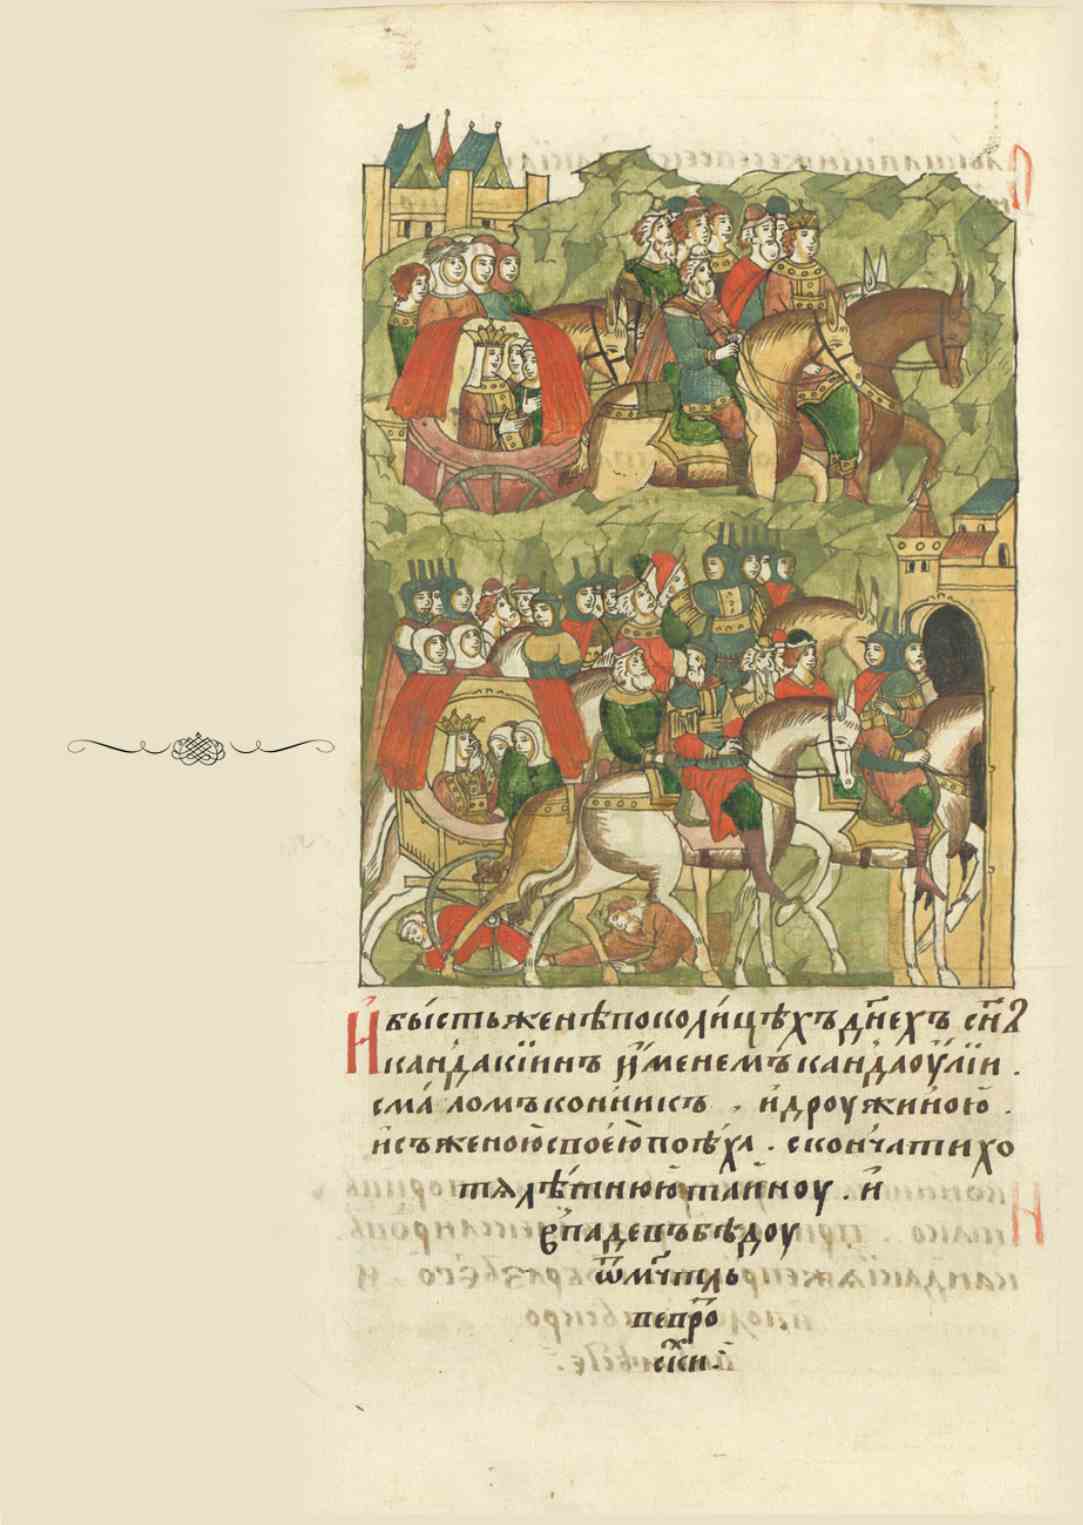 И бы́сть же не по коли́цѣхъ дн҃ехъ сн҃ꙋ
кандакі́инъ и҆́менемъ кандаоу́лїи .
с ма́ломъ ко́нникъ . и дроужи́ною .
и съ жено́ю свое́ю поѣ́ха . сконча́ти хо
тя лѣ́тнюю та́йноу . и
впаде въ бѣдоу
ѿ мч҃тль